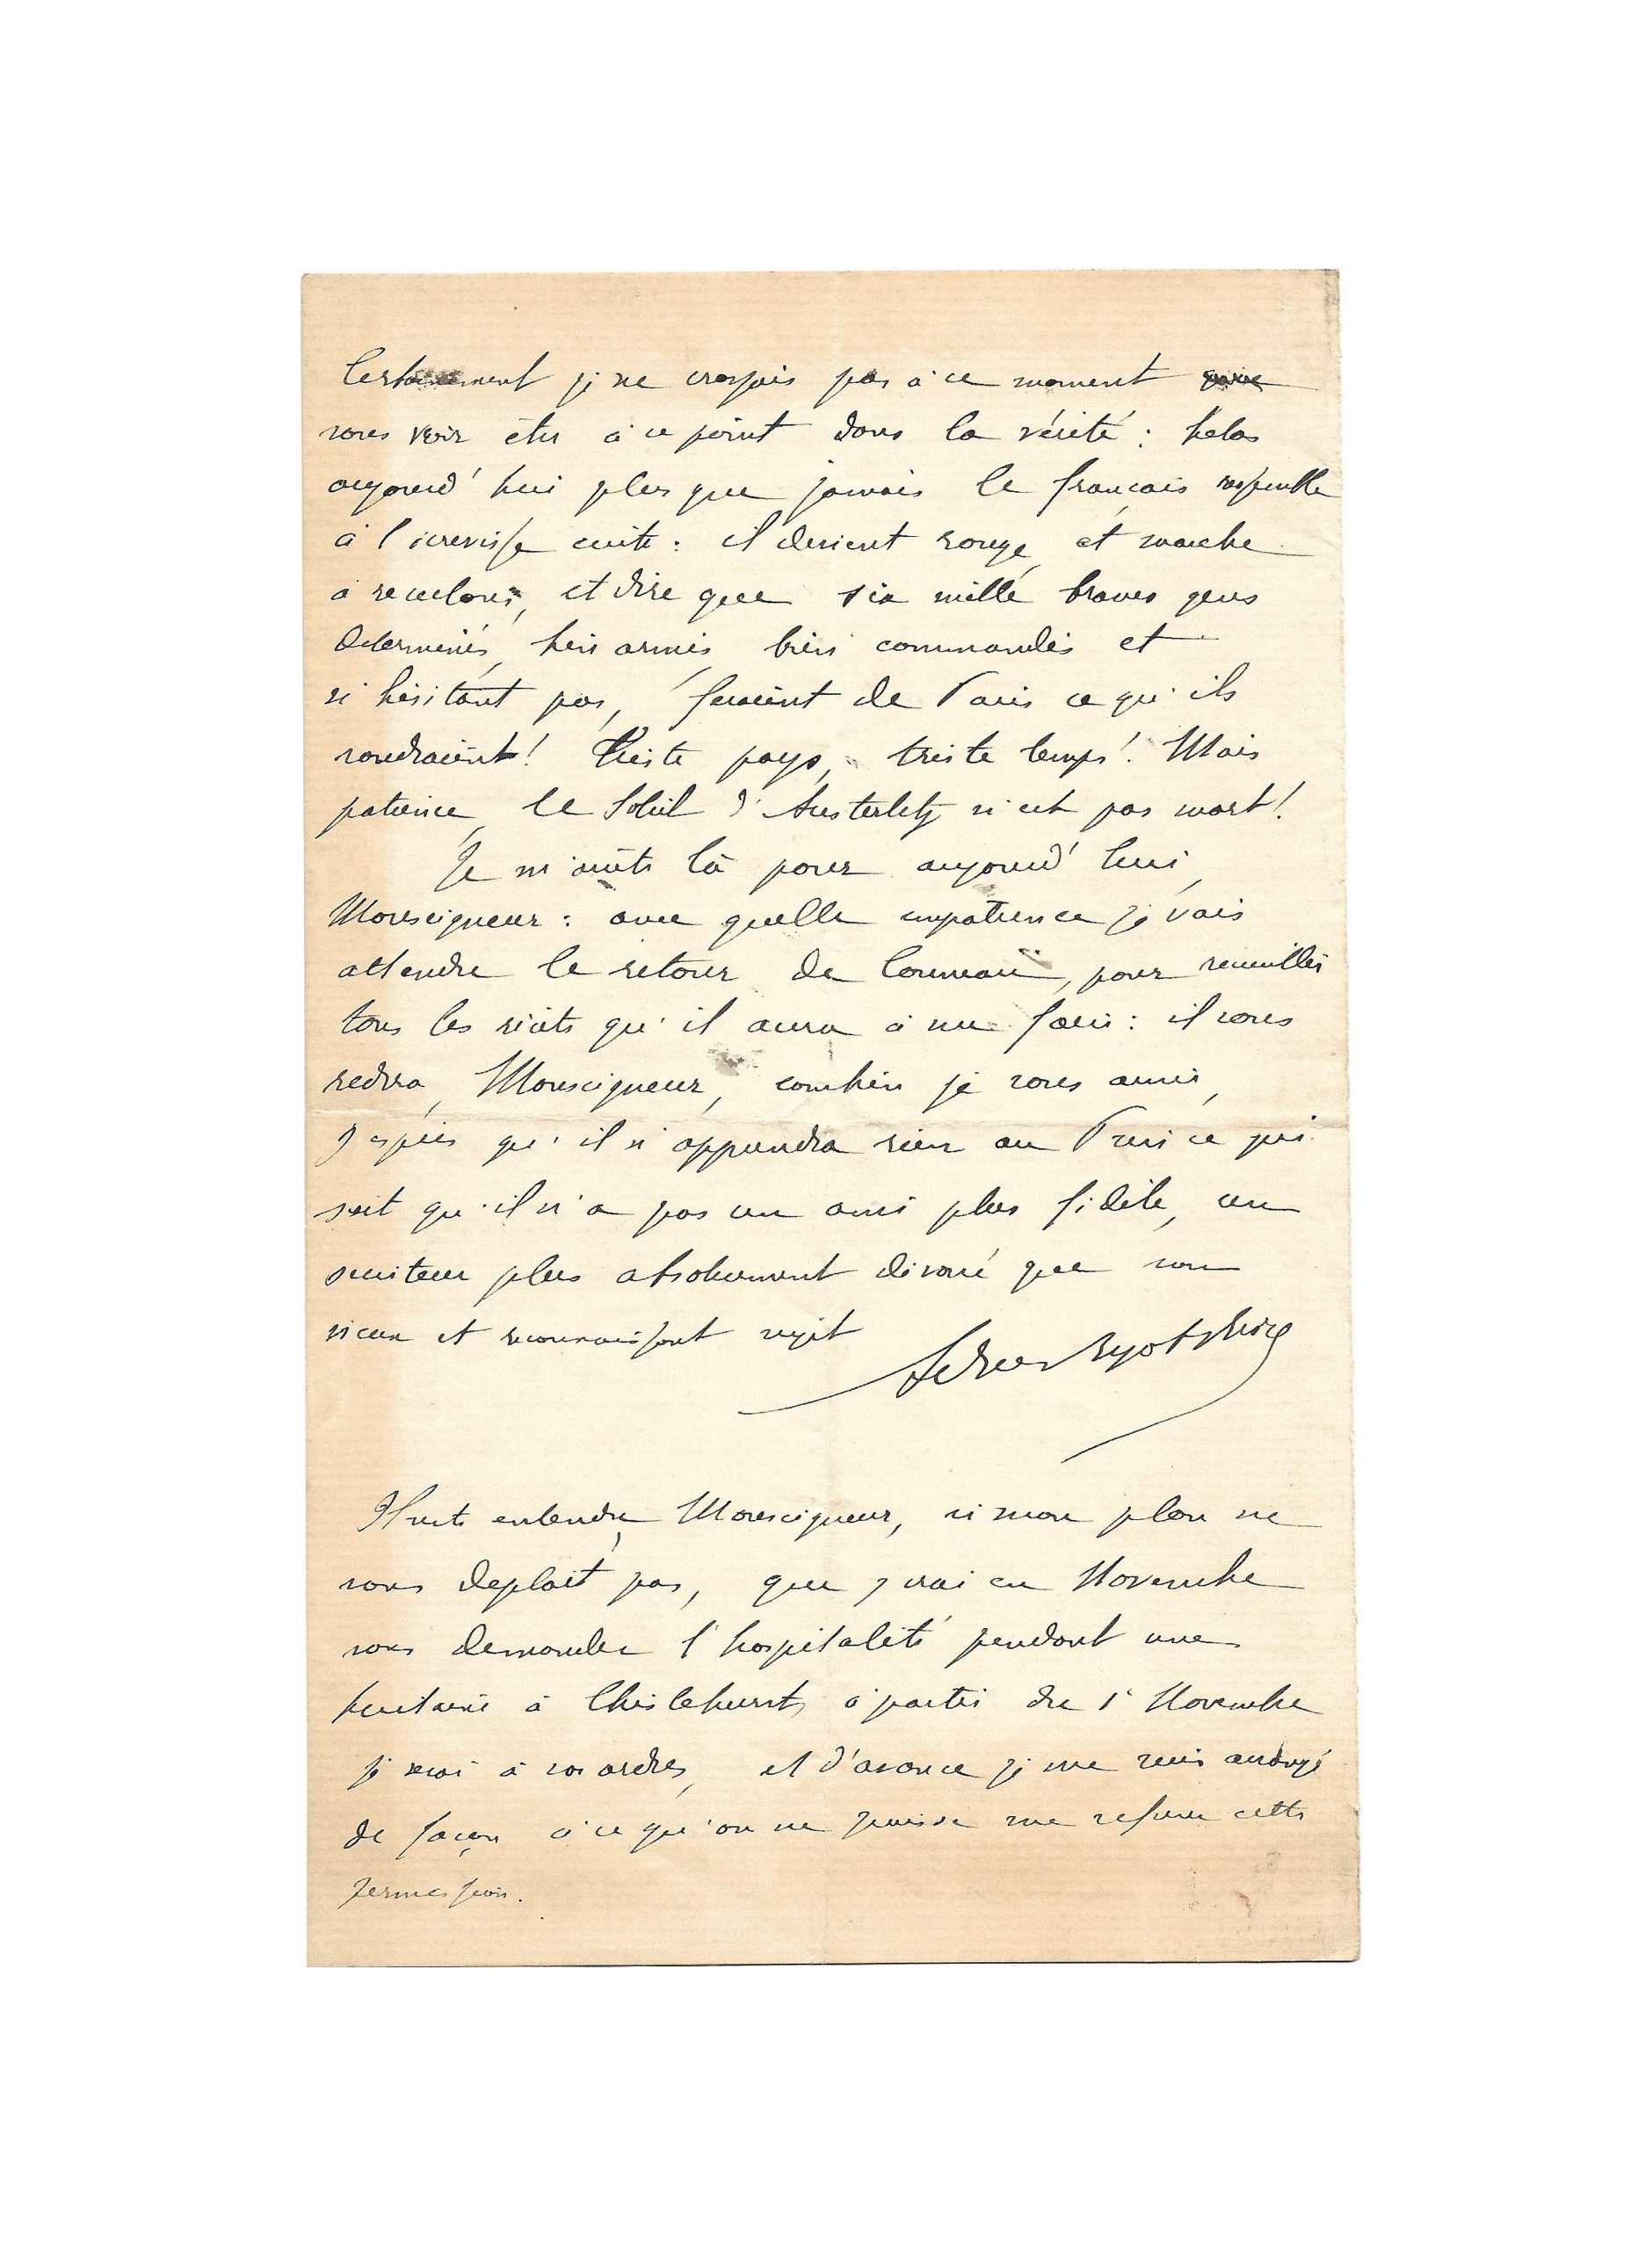 Certainement je ne croyais pas à ce moment
vous voir être à ce point dans la vérité : hélas
aujourd'hui plus que jamais le français ressemble
à l'écrevisse cuite : il devient rouge et marche
à reculons, et dire que six mille braves gens
determinés, bien armés, bien commandés et
n'hésitant pas, feraient de Paris ce qu'ils
voudraient ! Triste pays, triste temps ! Mais
patience, le Soleil d'Austerlitz n'est pas mort !
Je m'arrête là pour aujourd'hui,
Monseigneur : avec quelle impatience je vais
attendre le retour de Conneau, pour recueillir
tous les récits qu'il aura à me faire : il vous
redira, Monseigneur, combien je vous aime,
j'espère qu'il n'apprendra rien au Prince qui
sait qu'il n'a pas un ami plus fidèle, un
serviteur plus absolument dévoué que son
vieux et reconnaissant sujet
Il est entendu, Monseigneur, si mon plan ne
vous deplait pas, que j'irai en Novembre
vous demander l'hospitalité pendant une
huitaine à Chislehurst, à partir du 1er Novembre
je serai à vos ordres, et d'avance je me suis arrangé
de façon à ce qu'on ne puisse me refuser cette
permission.